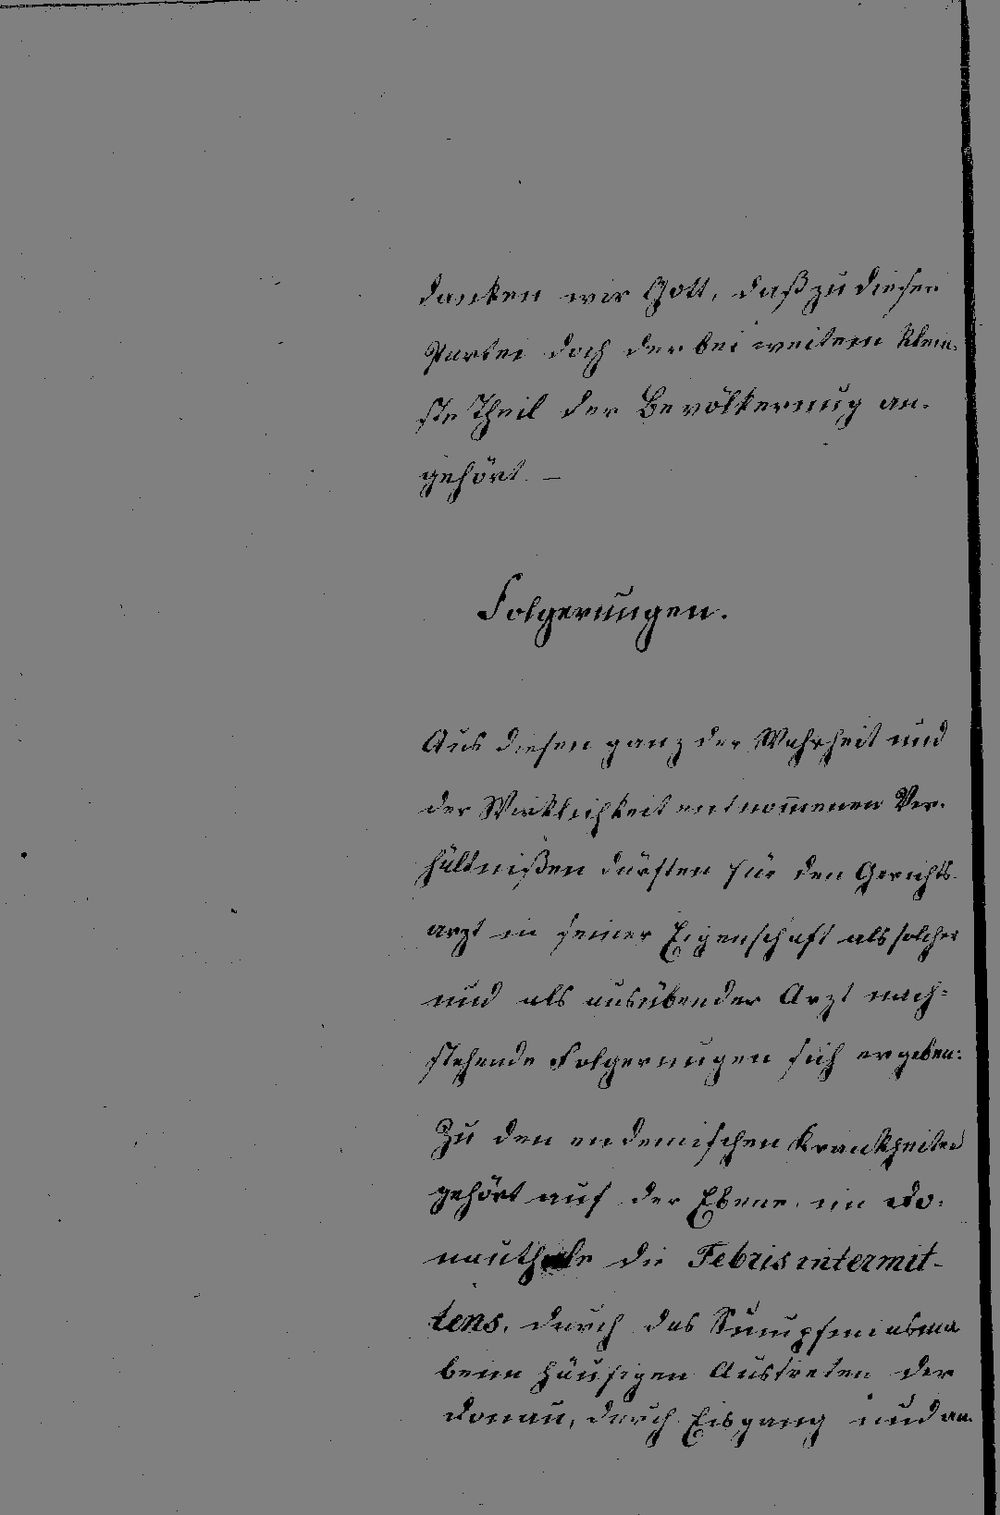 danken wir Gott, daß zu dieser
Partei doch der bei weitem klein-
ste Theil der Bevölkerung an-
gehört. —
Folgerungen.
Aus diesen ganz der Wahrheit und
der Wirklichkeit entnom̅enen Ver-
hältnißen dürften für den Gerichts-
arzt in seiner Eigenschaft als solcher
und als ausübender Arzt nach-
stehende Folgerungen sich ergeben:
Zu den endemischen Krankheiten
gehört auf der Ebene, im Do-
nauthale die Febris intermit-
tens, durch das Sumpfmiasma
beim häufigen Austreten der
Donau, durch Eisgang und an-